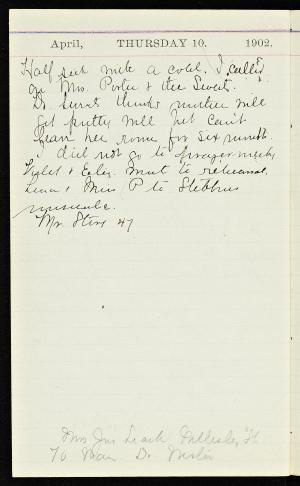 April, THURSDAY 10. 1902.
Half sick with a cold. I called
on Mrs. Porter & the Swets.
Dr. Swets thinks mother will
get pretty well but can't
leave her room for six months.
I did not go to prayer meeting
Violet & went to rehearsal.
& Miss P to Stebbins
musicale.
Mr. 47
Mrs Jas Leach St
70 Main